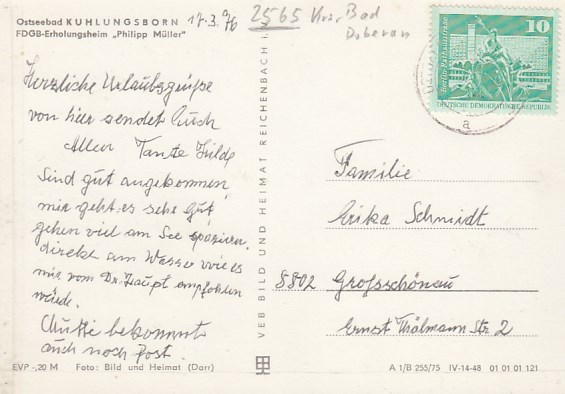 Ostseebad KUHLUNGSBORN
FDGB-Erholungsheim „Philipp Müller"
17.3.76
2565 Krs. Bad
Doberan
Herzliche Urlaubsgrüße
von hier sendet Euch
Allen Tante Hilde
Sind gut angekommen
mir geht es sehr gut
gehen viel am See spazieren
direkt am Wasser wie es
mir vom Dr. Haupt empfohlen
würde.
Mutti bekommt
auch noch Post.
EVP -,20 M Foto: Bild und Heimat (Darr)
VEB BILD UND HEIMAT REICHENBACH i.
10
Berlin-Rathausstraße
DEUTSCHE DEMOKRATISCHE REPUBLIK
a
Familie
Erika Schmidt
8802 Großschönau
Ernst Thälmann Str. 2
A 1/B 255/75 IV-14-48 01 01 01 121